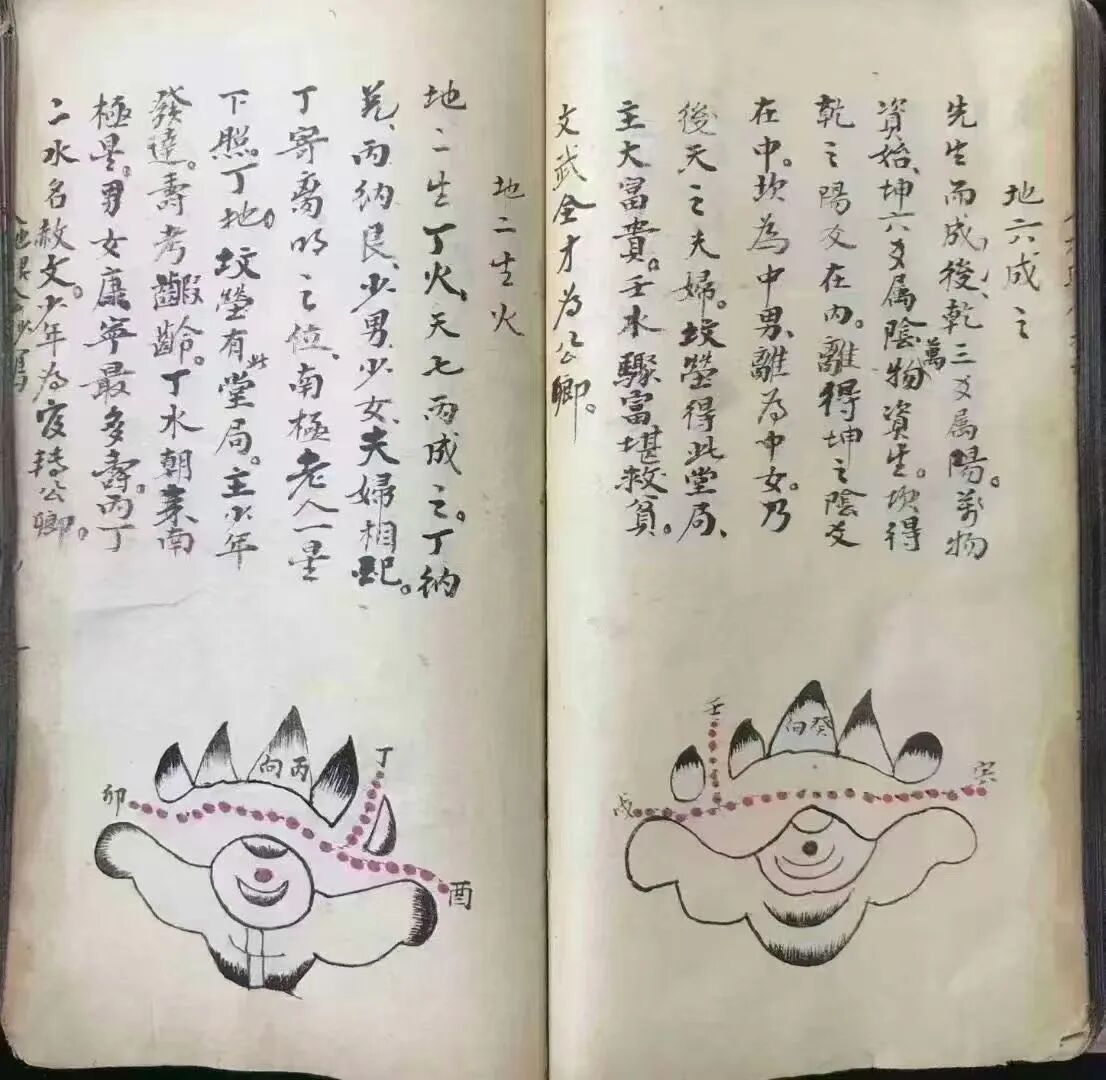 地六成之
先生而成後、乾三爻属陽。萬物
資始、坤六爻属陰萬物資生。坎得
乾之陽爻在内。離得坤之陰爻
在中。坎為中男、離為中女。乃
後天之夫婦。坟塋得此堂局、
主大富貴。壬水驟富堪救貧。
文武全才為公卿。
壬
癸向
戌
寅
地二生火
地二生丁火、天七丙成之。丁納
兌、丙納艮、少男、少女、夫婦相配。
丁寄离明之位、南極老人一星
下照。丁地。坟塋有此堂局。主少年
發達。壽考齦齡。丁水朝来南
極星。男女康寧最多壽。丙丁
二水名赦文。少年為官轉公卿。
丙向
丁
卯
酉